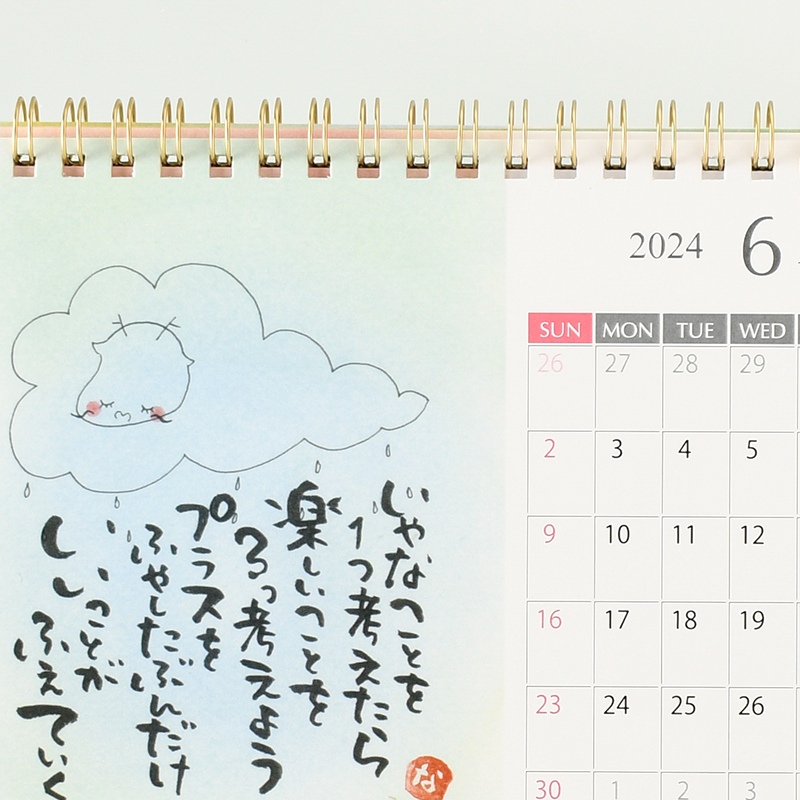 いやなことを
1つ考えたら
楽しいことを
3つ考えよう
プラスを
ふやしたぶんだけ
いいことが
ふえていく
な
2024 6
SUN MON TUE WED
26 27 28 29
2 3 4 5
9 10 11 12
16 17 18 19
23 24 25 26
30 1 2 3